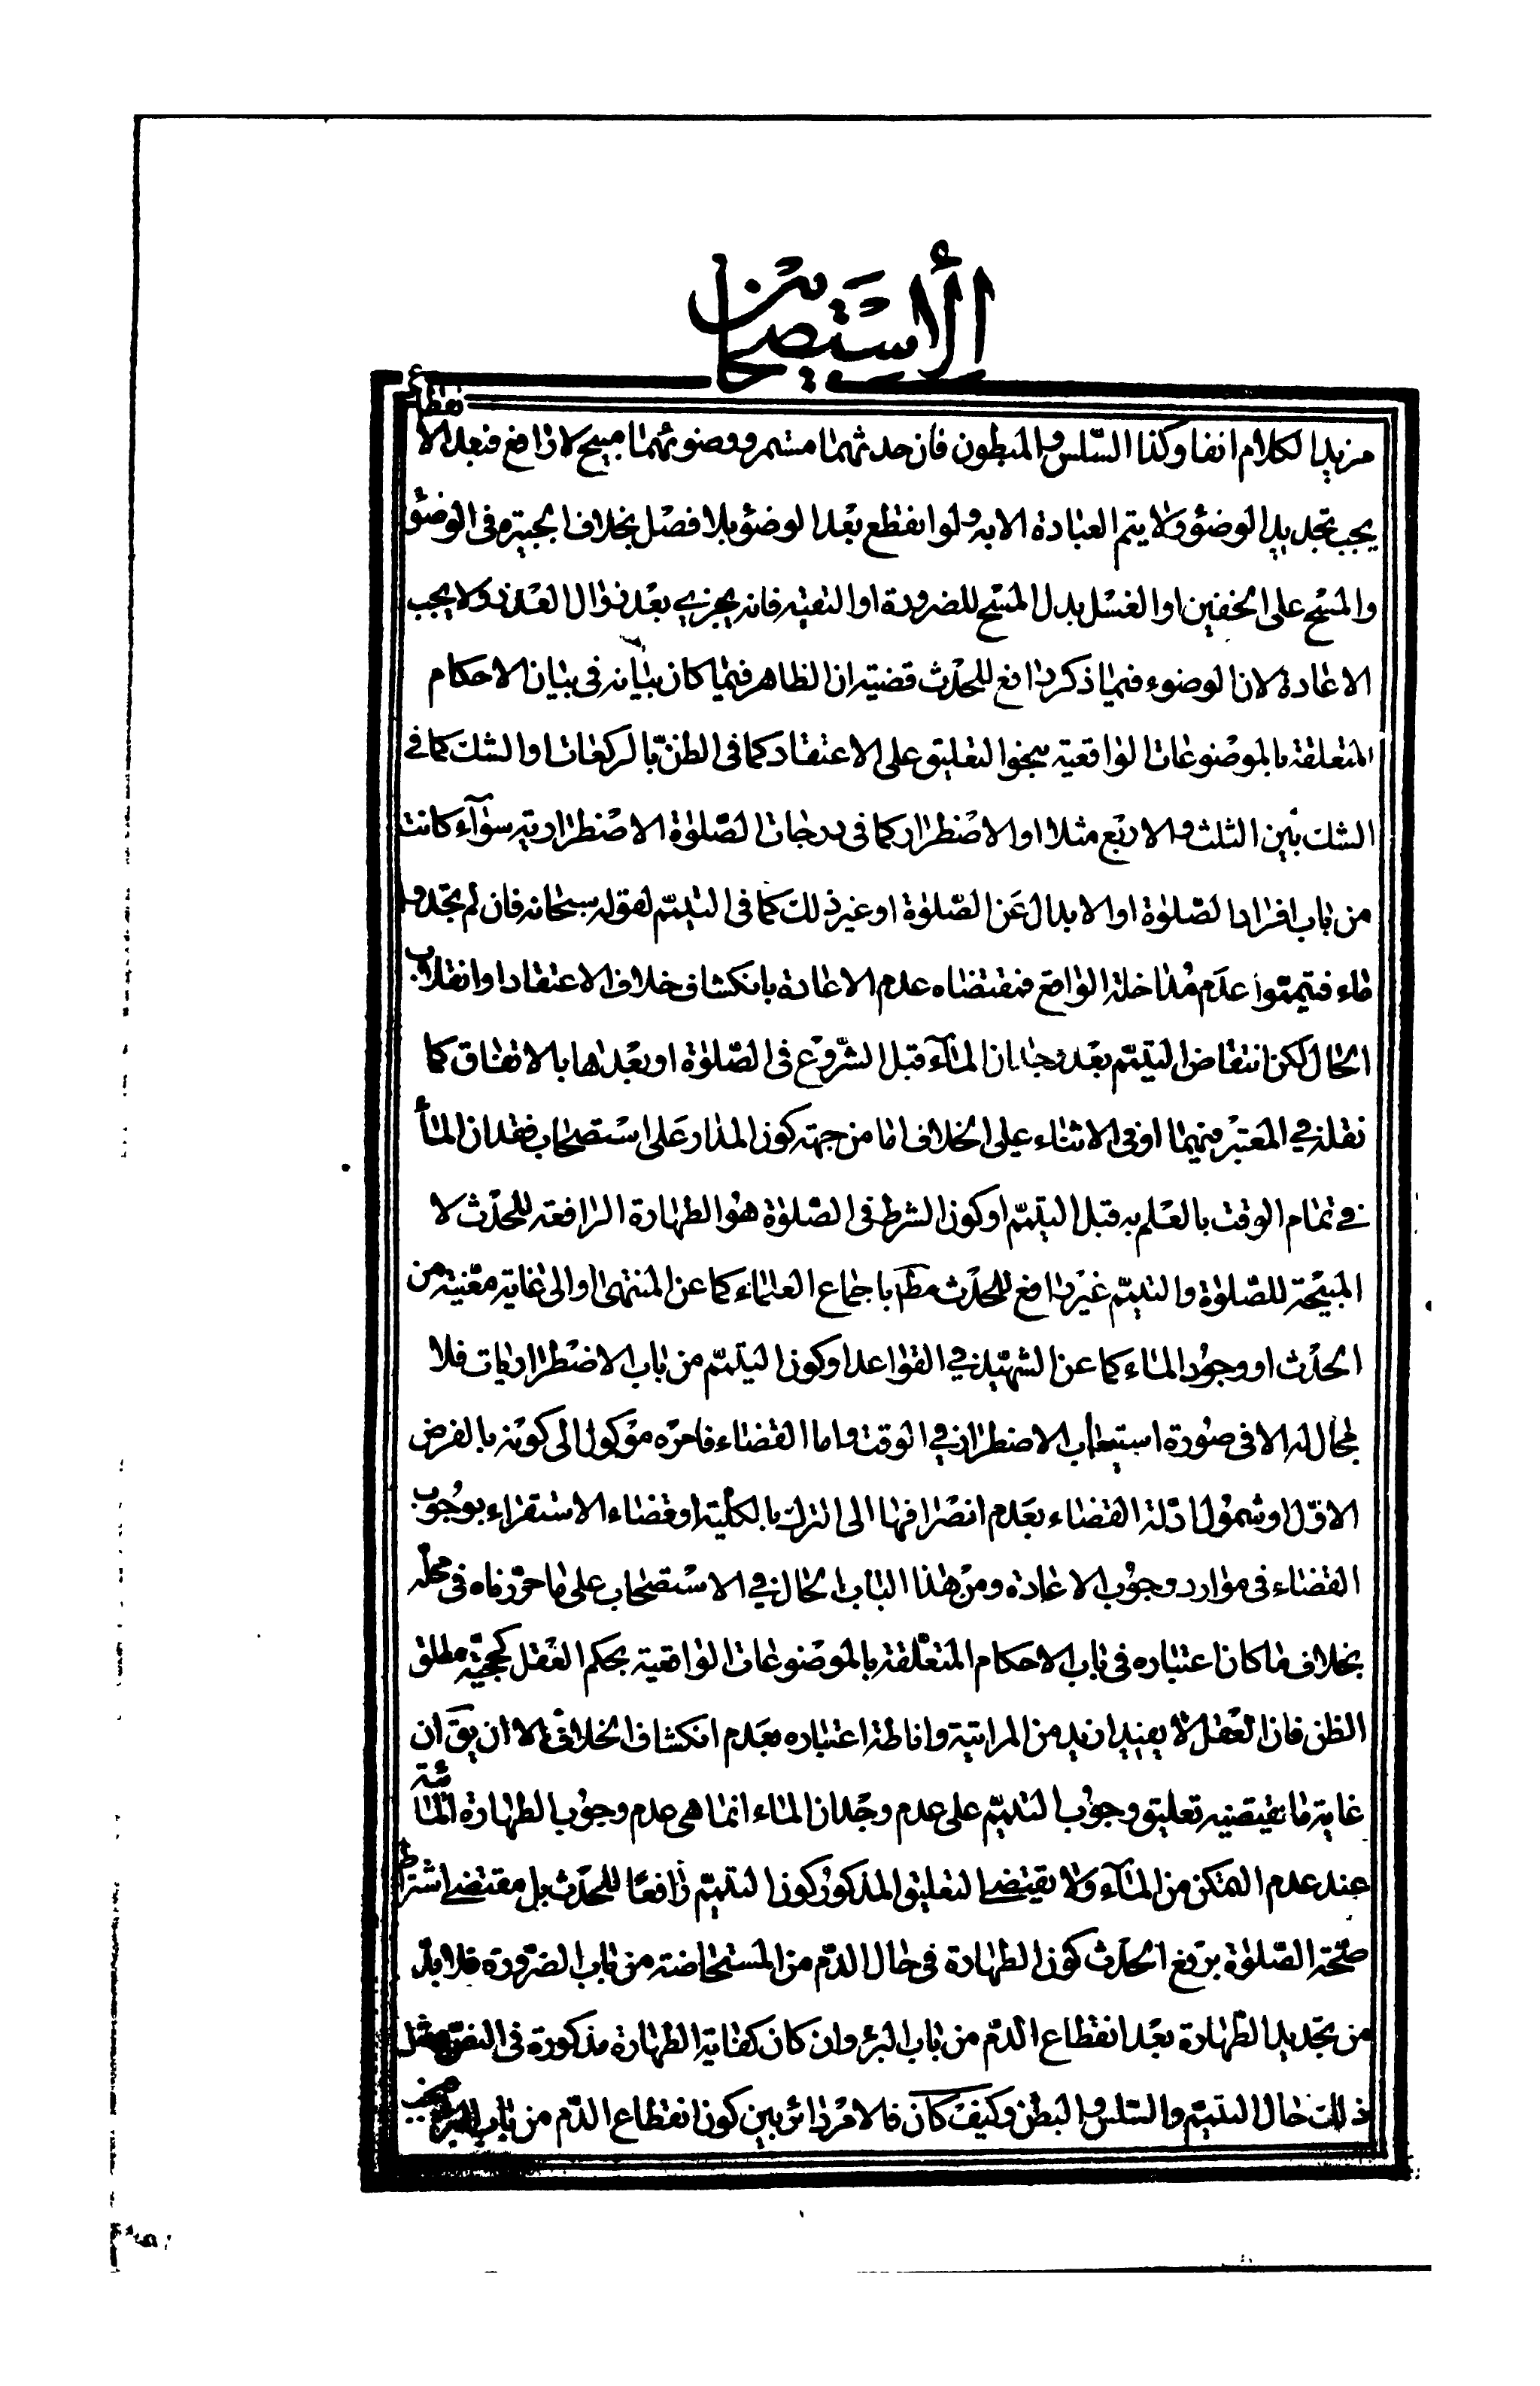 الاستصحاب
مزيد الكلام انفا وكذا السّلس والمبطون فان حدثهما مستمر ووضوئهما مبيح لا رافع فبعد الانقطاع
يجب تجديد الوضوء ولا يتم العبادة الا به ولو انقطع بعد الوضوء بلا فصل بخلاف الجبيرة في الوضوء
والمسح على الخفين او الغسل بدل المسح للضرورة او التقية فانه يجزي بعد زوال العذر ولا يجب
الاعادة لان الوضوء فيما ذكر رافع للحدث قضية ان الظاهر فيما كان بيانه في بيان الاحكام
المتعلقة بالموضوعات الواقعية بنحو التعليق على الاعتقاد كما في الظنّ بالركعات او الشك كما في
الشك بين الثلث والاربع مثلا او الاضطرار كما في درجات الصّلوة الاضطرارية سوآء كانت
من باب افراد الصّلوة او الابدال عن الصّلوة او غير ذلك كما في التيمّم لقوله سبحانه فان لم تجدوا
ماء فتيمّموا عدم مداخلة الواقع فمقتضاه عدم الاعادة بانكشاف خلاف الاعتقاد او انقلاب
الحال لكن انتقاض التيمّم بعد وجدان المآء قبل الشّروع في الصّلوة او بعدها بالاتفاق كما
نقله في المعتبر فيهما او في الاثناء على الخلاف اما من جهة كون المدار على استصحاب فقدان المآء
في تمام الوقت بالعلم به قبل التيمّم او كون الشرط في الصّلوة هو الطهارة الرافعة للحدث لا
المبيحة للصّلوة والتيمّم غير رافع للحدث مط باجماع العلماء كما عن المنتهى او الى غاية معيّنة من
الحدث او وجود الماء كما عن الشهيد في القواعد او كون التيمّم من باب الاضطراريات فلا
مجال له الا في صورة استيعاب الاضطرار في الوقت واما القضاء فامره موكول الى كونه بالفرض
الاوّل او شمول ادّلة القضاء بعدم انصرافها الى الترك بالكلّية او قضاء الاستقراء بوجوب
القضاء في موارد وجوب الاعادة ومن هذا الباب الحال في الاستصحاب على ما حرّرناه في محلّه
بخلاف ما كان اعتباره في باب الاحكام المتعلّقة بالموضوعات الواقعية بحكم العقل كحجيّة مطلق
الظن فان العقل لا يفيد ازيد من المراتية واناطة اعتباره بعدم انكشاف الخلاف الا ان يق ان
غاية ما يقتضيه تعليق وجوب التيمّم على عدم وجدان الماء انما هي عدم وجوب الطهارة المائية
عند عدم التمكن من المآء ولا يقتضي التعليق المذكور كون التيمّم رافعًا للحدث بل مقتضى اشتراط
صحّة الصّلوة برفع الحدث كون الطهارة في حال الدّم من المستحاضة من باب الضرورة فلا بدّ
من تجديد الطّهارة بعد انقطاع الدّم من باب البرء وان كان كفاية الطهارة مذكورة في النصّ ومثل
ذلك حال التيمّم والسّلس والبطن وكيف كان فالامر دائر بين كون انقطاع الدّم من باب البرء